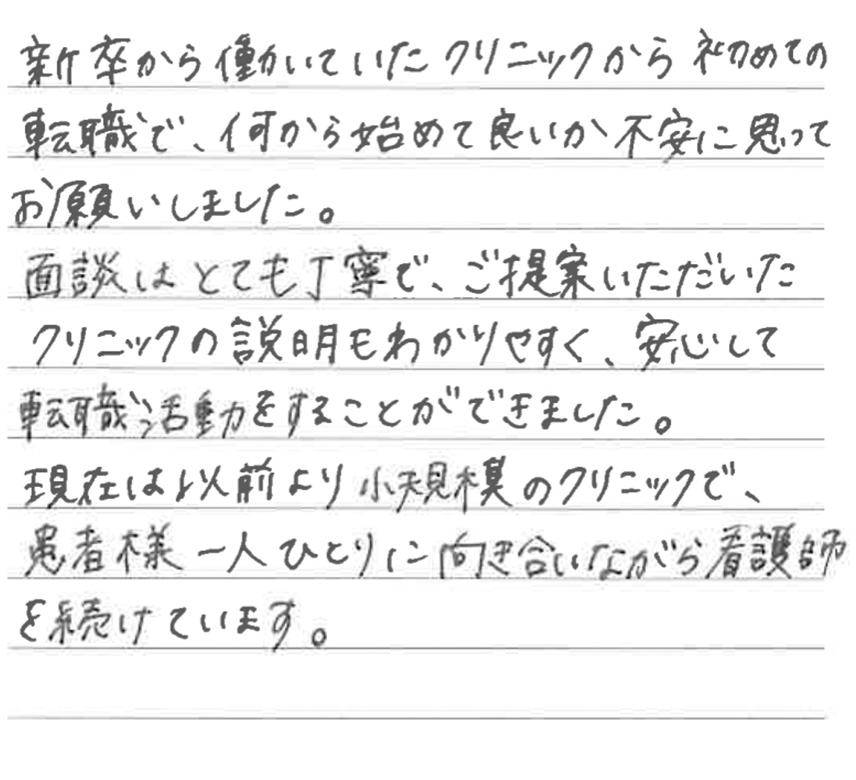 新卒から働いていたクリニックから初めての
転職で、何から始めて良いか不安に思って
お願いしました。
面談はとても丁寧で、ご提案いただいた
クリニックの説明もわかりやすく、安心して
転職活動をすることができました。
現在は以前より小規模のクリニックで、
患者様一人ひとりに向き合いながら看護師
を続けています。